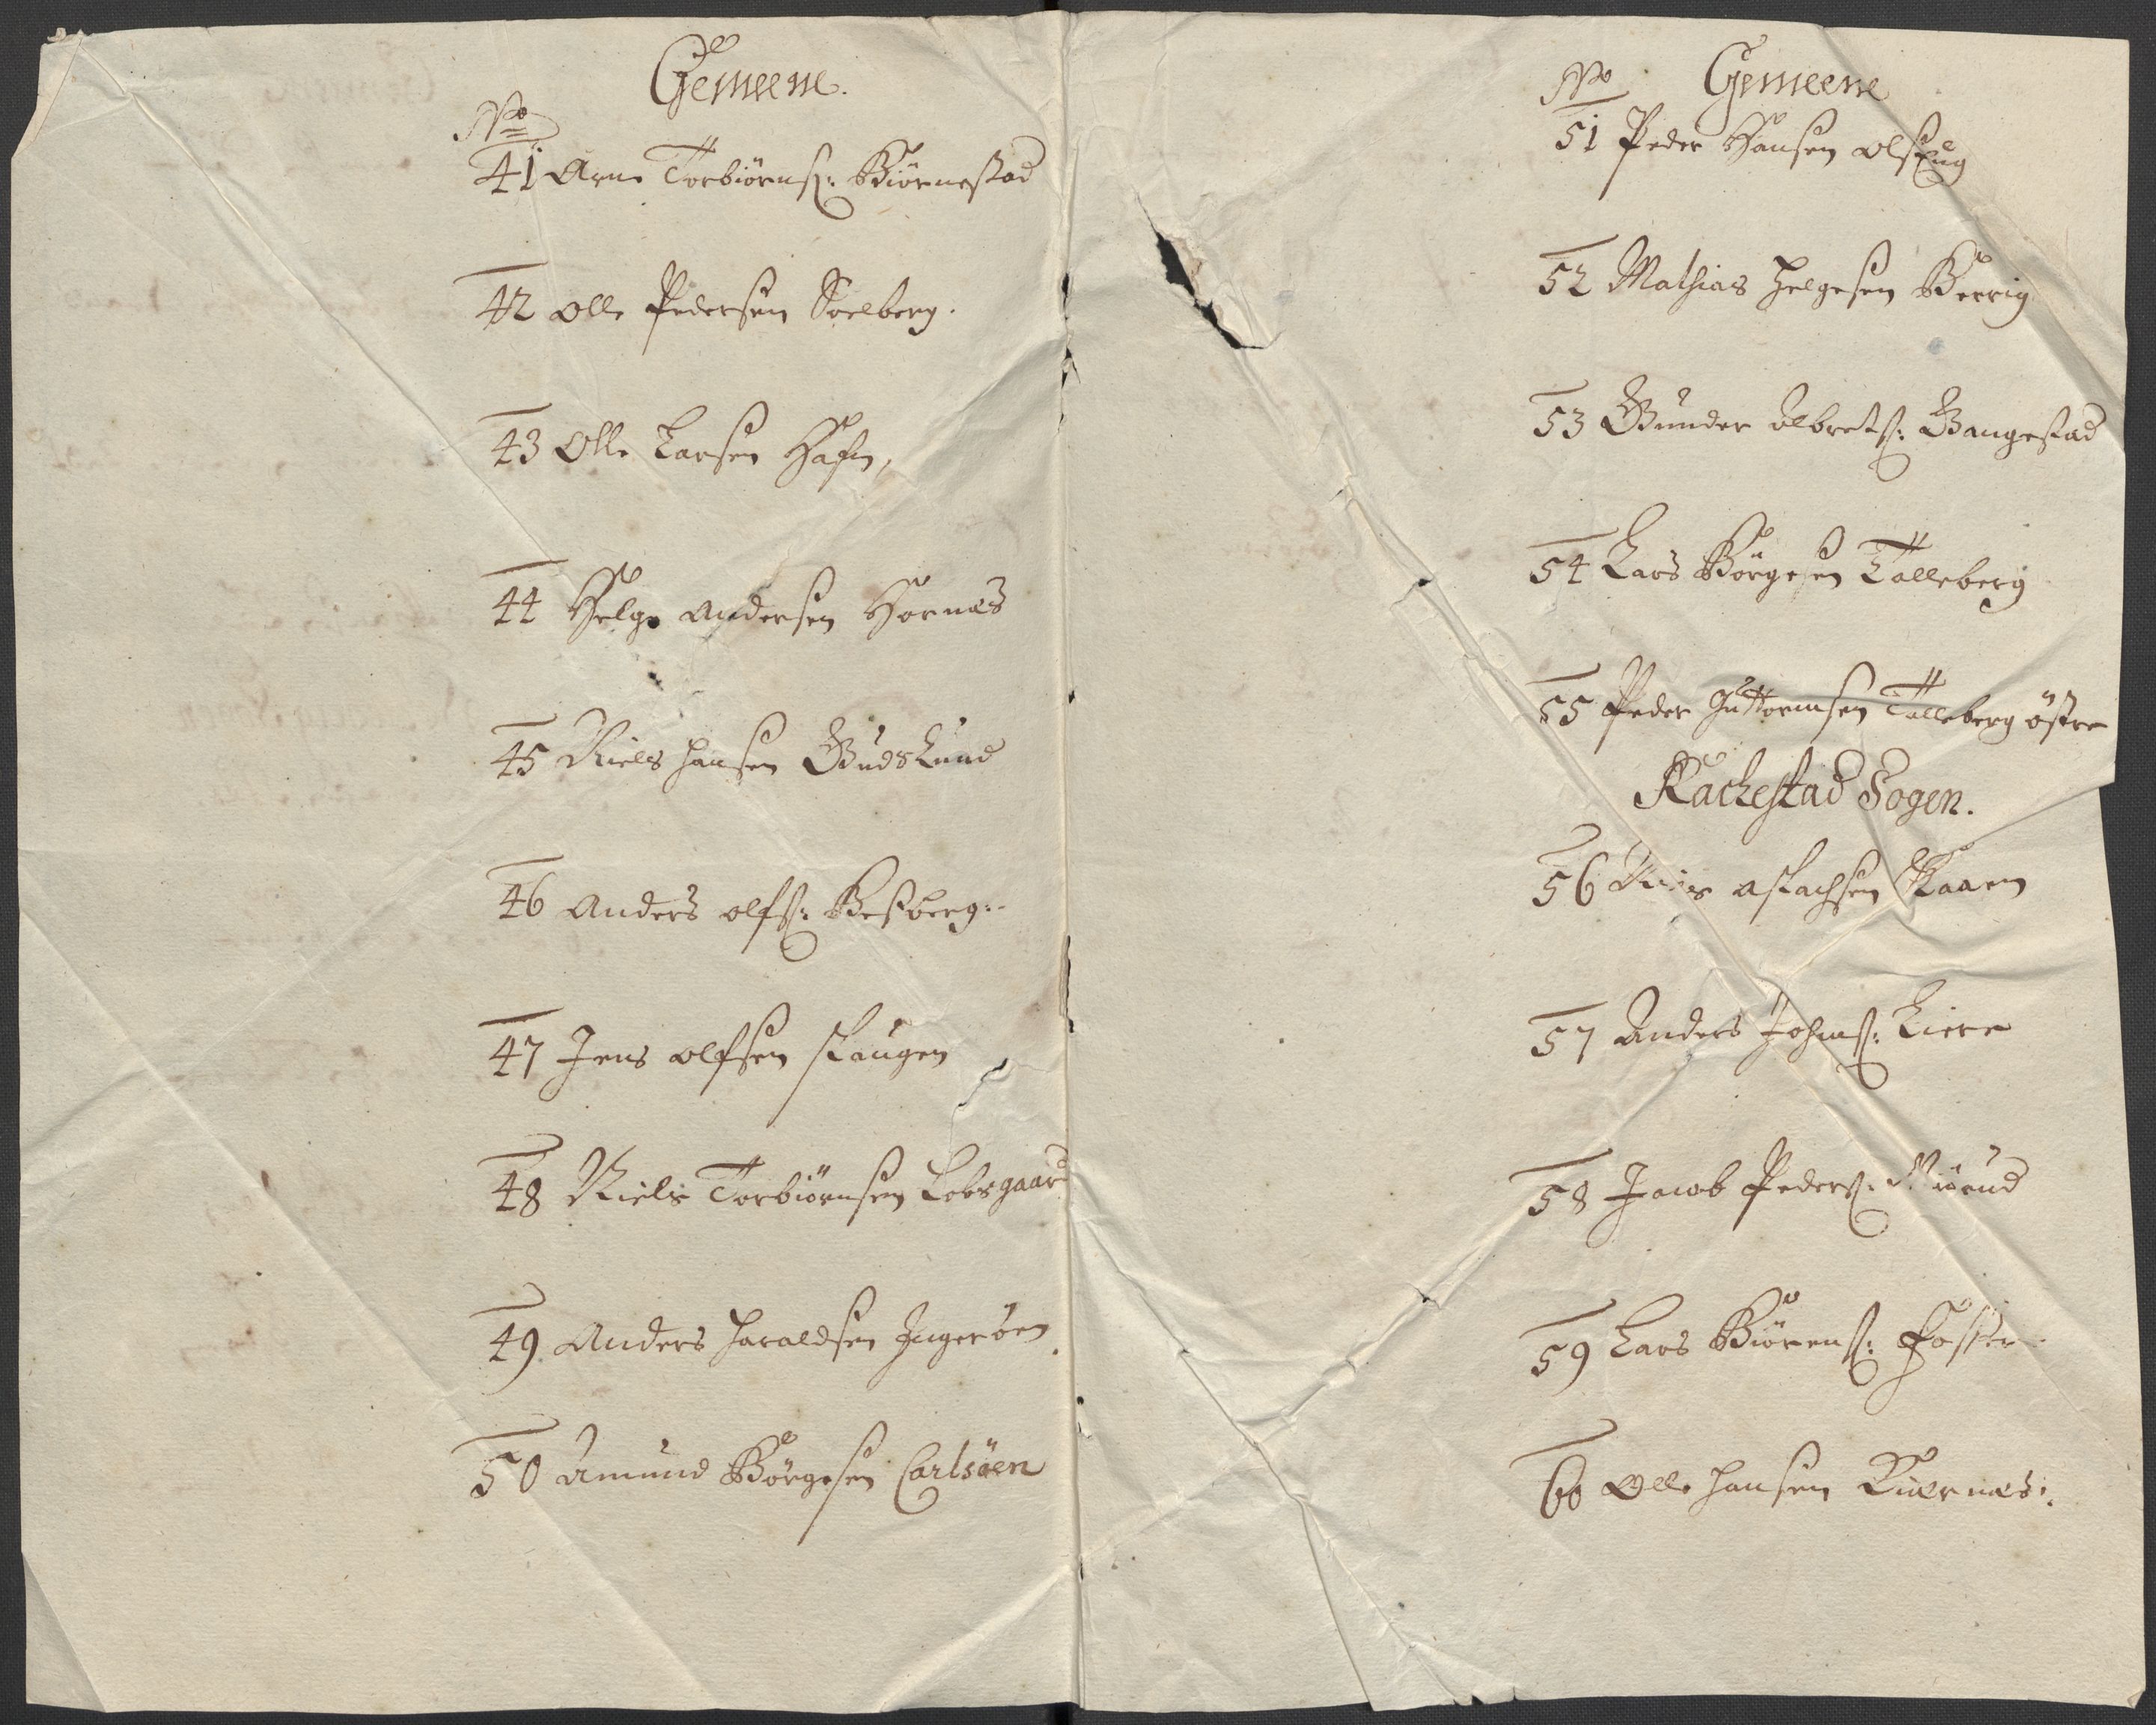 Gemeene.
No
41 Arne Torbiørnß: Biørnestad
42 Olle Pedersen Soelberg.
43 Olle Larsen Hafn,
44 Helge Andersen Hornæs
45 Niels Hansen Gudslund
46 Anders Olfß: Bessberg:
47 Jens Olfsen Skaugen
48 Niels Torbiörnsen Lobsgaard
49 Anders Haraldsen Ingeröen
50 Amund Börgesen Carlsöen
No Gemeene
51 Peder Hansen
52 Mathias Helgesen Berrig
53 Gunder Olbretß: Gaugestad
54 Lars Börgesen Talleberg
55 Peder Guttormsen Talleberg östre
Rachestad Sogen.
56 Aslachsen Kaaen
57 Anders Johnß: Liere
58 Jacob Pederß:
59 Lars Biörenß: Foster
60 Olle Hansen